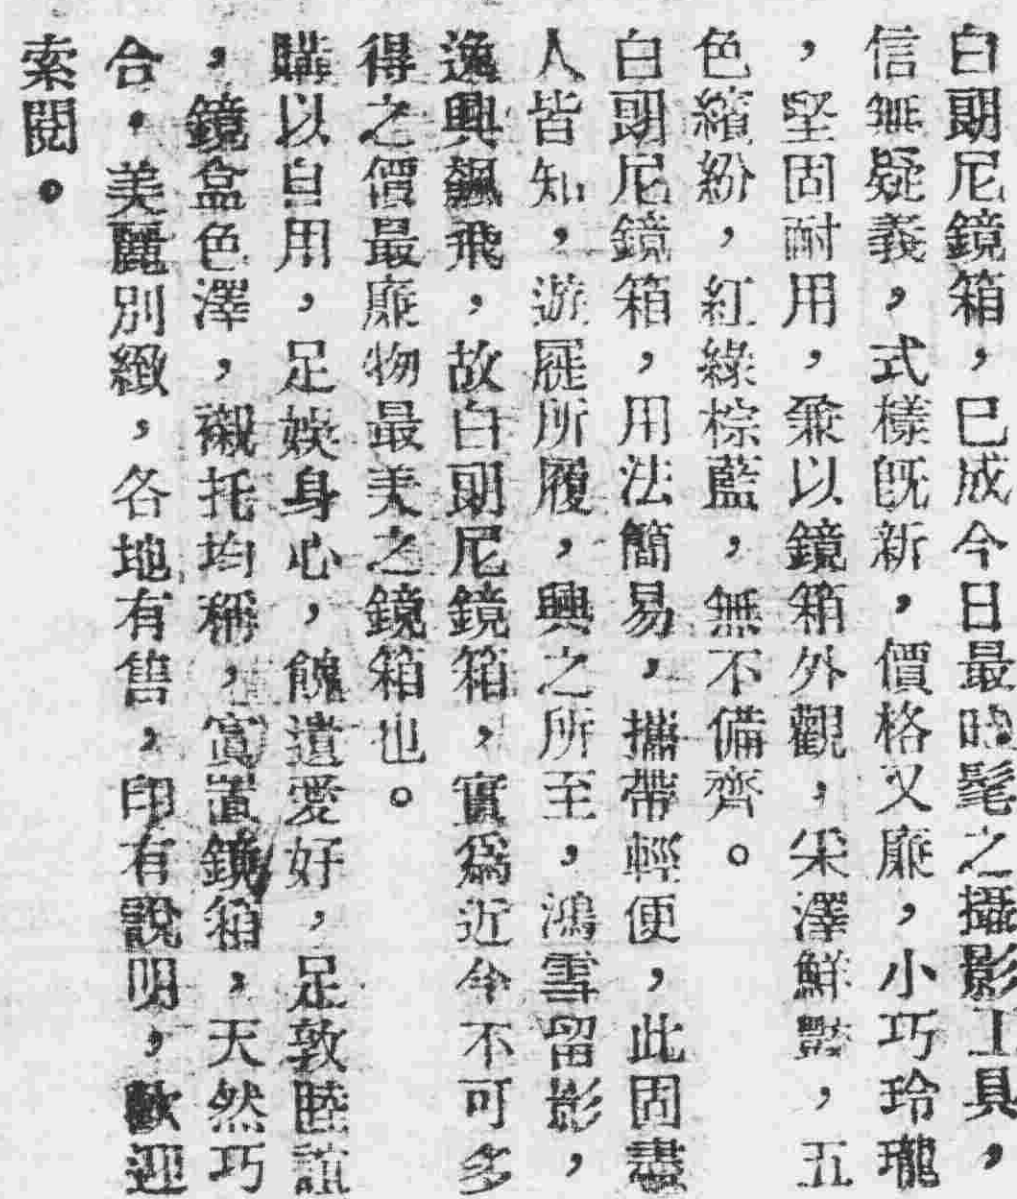 白朗尼鏡箱，已成今日最時髦之攝影工具，
信無疑義，式樣旣新，價格又廉，小巧玲瓏
，堅固耐用，兼以鏡箱外觀，采澤鮮豔，五
色繽紛，紅綠棕藍，無不備齊。
白朗尼鏡箱，用法簡易，攜帶輕便，此固盡
人皆知，游屐所履，興之所至，鴻雪留影，
逸興飆飛，故白朗尼鏡箱，實爲近今不可多
得之價最廉物最美之鏡箱也。
購以自用，足娛身心，餽遺愛好，足敦睦誼
，鏡盒色澤，襯托均稱，實置鏡箱，天然巧
合，美麗別緻，各地有售，印有說明，歡迎
索閱。